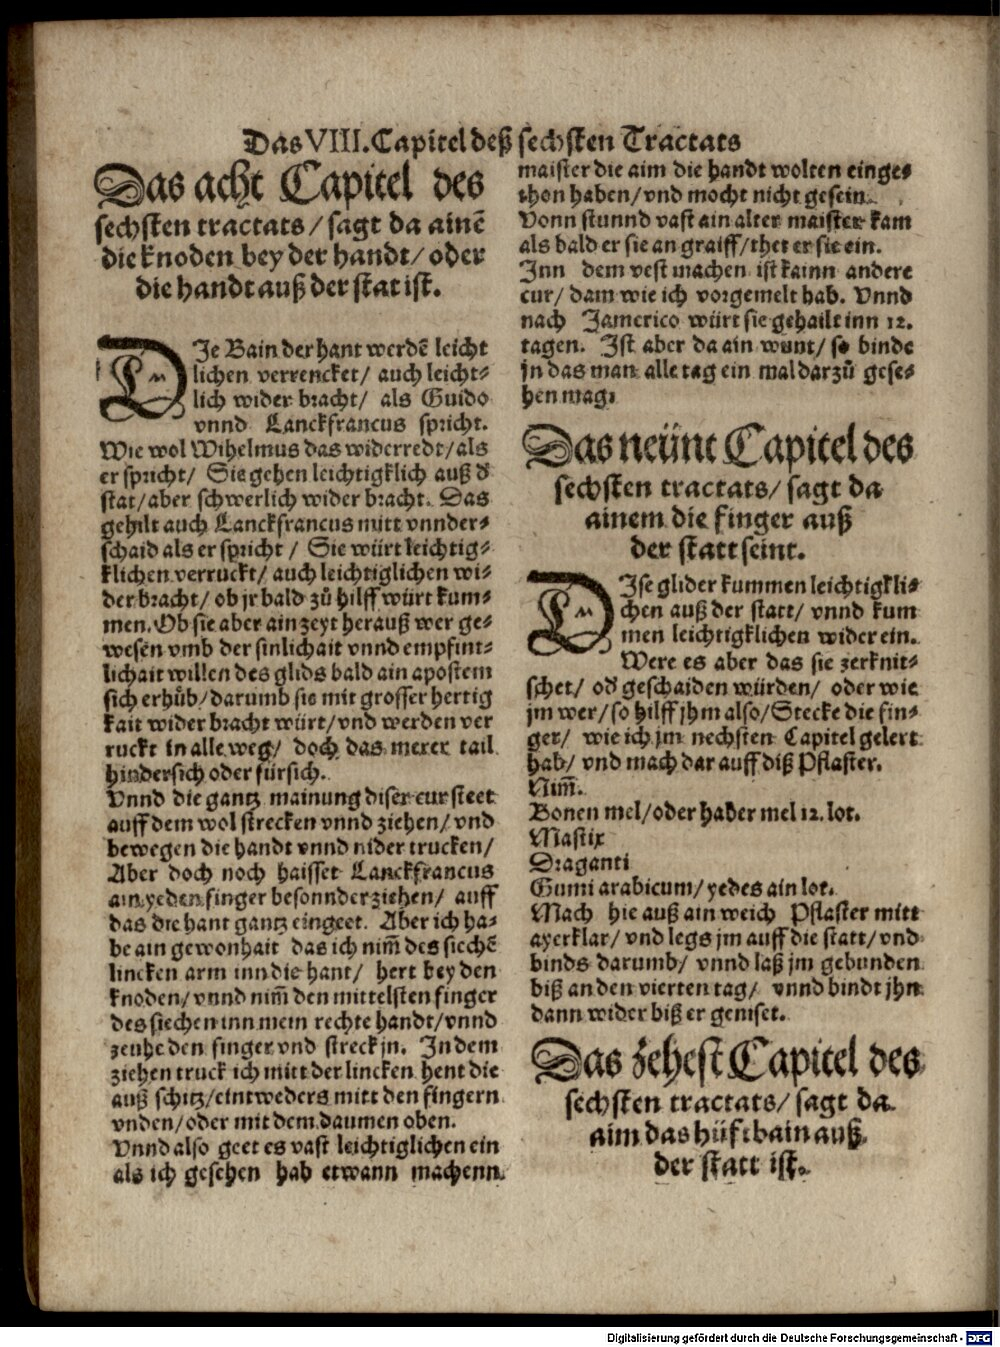 Das VIII. Capitel deß sechsten Tractats
Das acht Capitel des
sechsten tractats / sagt da ainē
die knoden bey der handt / oder
die handt auß der stat ist.
DIe Bain der hant werdē leicht
lichen verrencket / auch leicht⸗
lich wider bracht / als Guido
vnnd Lanckfrancus spricht.
Wie wol Wihelmus das widerredt / als
er spricht / Sie gehen leichtigklich auß d̄
stat / aber schwerlich wider bracht. Das
gehilt auch Lanckfrancus mitt vnnder⸗
schaid als er spricht / Sie würt leichtig⸗
klichen verruckt / auch leichtiglichen wi⸗
der bracht / ob jr bald zů hilff würt kum⸗
men. Ob sie aber ain zeyt herauß wer ge⸗
wesen vmb der sinlichait vnnd empfint⸗
lichait willen des glids bald ain apostem
sich erhůb / darumb sie mit grosser hertig
kait wider bracht würt / vnd werden ver
ruckt in alle weg / doch das merer tail
hindersich oder fürsich.
Vnnd die gantz mainung diser cur steet
auff dem wol strecken vnnd ziehen / vnd
bewegen die handt vnnd nider trucken /
Aber doch noch haisset Lanckfrancus
ain yeden finger besonnder ziehen / auff
das die hant gantz eingeet. Aber ich ha⸗
be ain gewonhait das ich nim̄ des siechē
lincken arm inn die hant / hert bey den
knoden / vnnd nim̄ den mittelsten finger
des siechen inn mein rechte handt / vnnd
zeuhe den finger vnd streck jn. In dem
ziehen truck ich mitt der lincken hent die
auß schitz / eintweders mitt den fingern
vnden / oder mit dem daumen oben.
Vnnd also geet es vast leichtiglichen ein
als ich gesehen hab etwann machenn
maister die aim die handt wolten einge⸗
thon haben / vnd mocht nicht gesein.
Vonn stunnd vast ain alter maister kam
als bald er sie an graiff / thet er sie ein.
Inn dem vest machen ist kainn andere
cur / dann wie ich vorgemelt hab. Vnnd
nach Jamerico würt sie gehailt inn 12.
tagen. Ist aber da ain wunt / so binde
jn das man alle tag ein mal darzů gese⸗
hen mag.
Das neünt Capitel des
sechsten tractats / sagt da
ainem die finger auß
der statt seint.
DIse glider kummen leichtigkli⸗
chen auß der statt / vnnd kum
men leichtigklichen wider ein.
Were es aber das sie zerknit⸗
schet / od̄ geschaiden würden / oder wie
jm wer / so hilff jhm also / Stecke die fin⸗
ger / wie ich jm nechsten Capitel gelert
hab / vnd mach dar auff diß Pflaster.
Nim̄.
Bonen mel / oder haber mel 12. lot.
Mastix
Draganti
Gumi arabicum / yedes ain lot.
Mach hie auß ain weich Pflaster mitt
ayerklar / vnd legs jm auff die statt / vnd
binds darumb / vnnd laß jm gebunden
biß an den vierten tag / vnnd bindt jhn
dann wider biß er geniset.
Das zehest Capitel des
sechsten tractats / sagt da
aim das hüftbain auß
der statt ist.
Digitalisierung gefördert durch die Deutsche Forschungsgemeinschaft - DFG